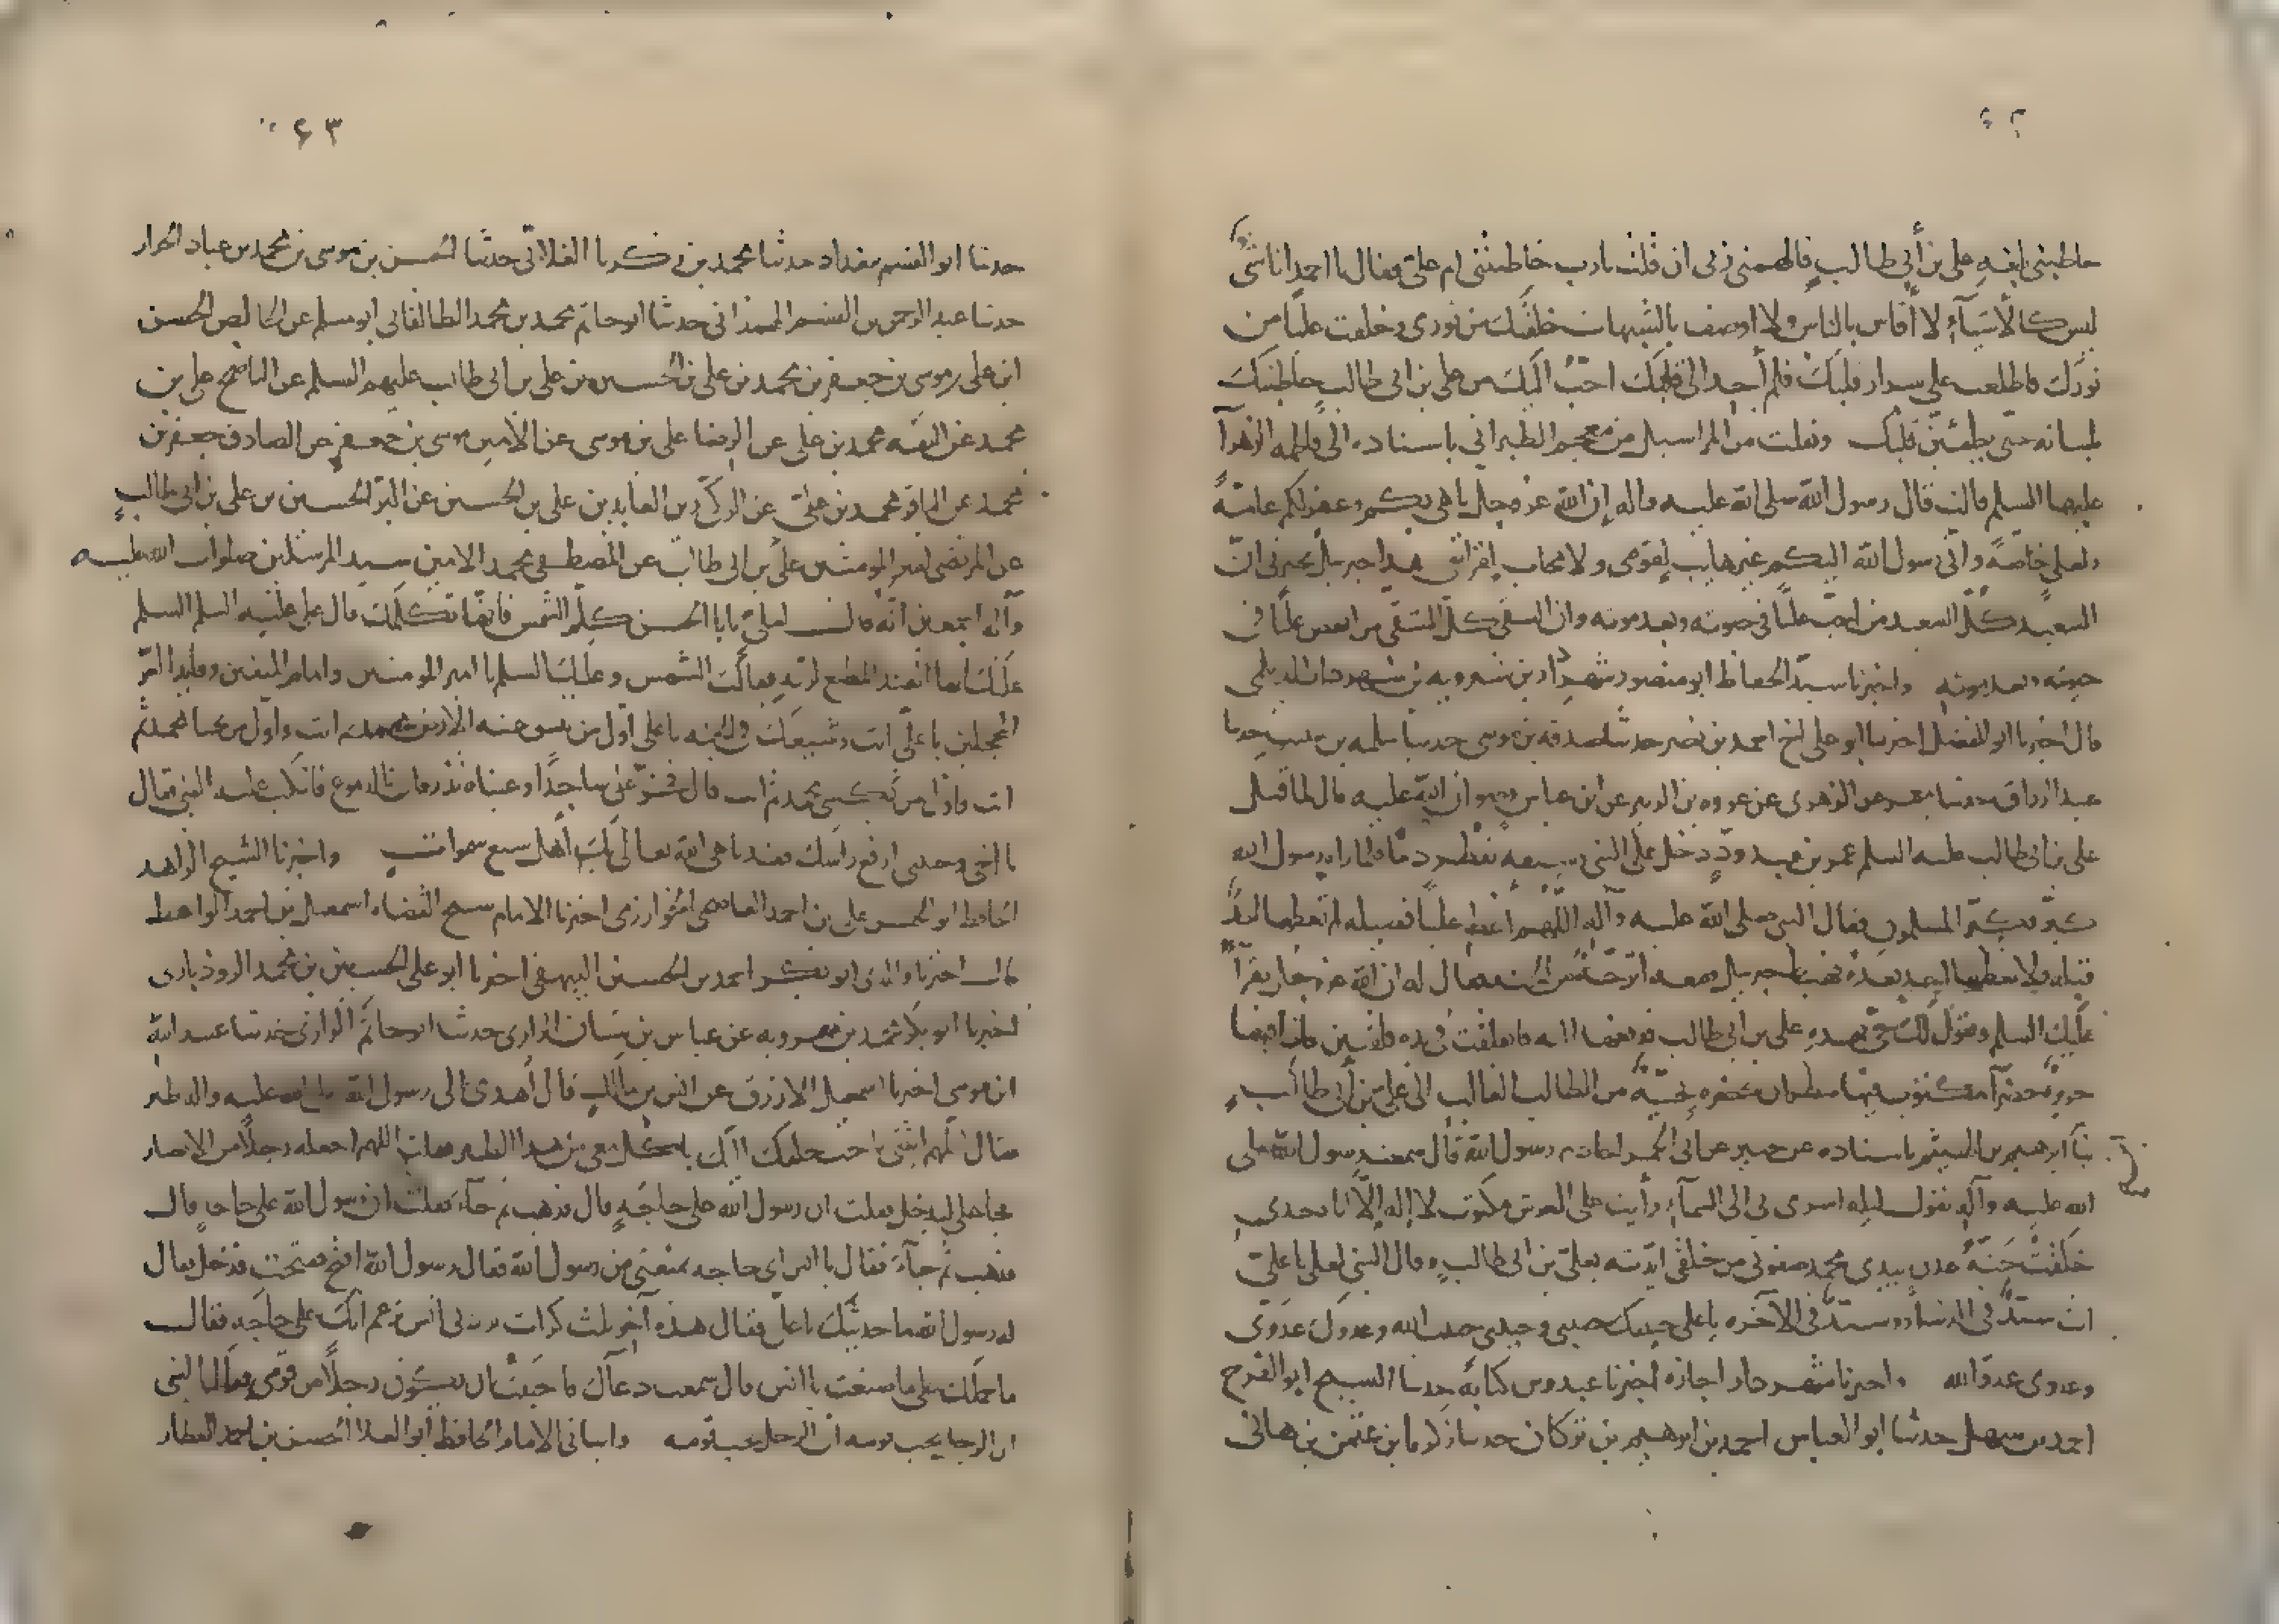 ٤٢
خاطبنى بلغه على بن أبى طالب فالهمنى ربى ان قلت يا رب خاطبتنى ام على فقال يا احمد انا شىء
ليس كالأشياء لا أقاس بالناس ولا اوصف بالشبهات خلقتك من نورى وخلقت عليا من
نورك فاطلعت على سراير قلبك فلم أجد الى قلبك احب اليك من على بن ابى طالب خاطبتك
بلسانه حتى يطمئن قلبك ونقلت من المراسيل من معجم الطبرانى باسناده الى فاطمه الزهرآ
عليها السلم قالت قال رسول الله صلى الله عليه واله إن الله عز وجل باهى بكم وغفر لكم عامة
ولعلى خاصة وانى رسول الله اليكم غير هايب لقومى ولا محاب لقرابتى هذا جبريل يخبرنى ان
السعيد كل السعيد من احب عليا فى حيوته وبعد موته وان الشقى كل الشقى من ابغض عليا فى
حيوته وبعد موته واخبرنا سيد الحفاظ ابو منصور شهردار بن شيرويه بن شهردار الديلمى
قال اخبرنا ابو الفضل اخبرنا ابو على احمد بن نصر حدثنا صدقه بن موسى حدثنا سلمه بن شبيب حدثنا
عبد الرزاق حدثنا معمر عن الزهرى عن عروه بن الزبير عن ابن عباس رضوان الله عليه قال لما قتل
على بن ابى طالب عليه السلم عمرو بن عبد ود دخل على النبى وسيفه يقطر دما فلما راه رسول الله
كبر وكبر المسلمون فقال النبى صلى الله عليه وآله اللهم اعط عليا فضيله لم تعطها احدا
قبله ولا تعطها احد بعده فهبط جبريل ومعه اترجة من الجنه فقال له ان الله عز وجل يقرأ
عليك السلم ويقول لك حى بهذه على بن أبى طالب فدفعها اليه فانفلقت فى يده فلقتين فاذا فيها
حريرة خضرآ مكتوب فيها سطران بخضره تحية من الطالب الغالب الى على بن أبى طالب
الله عليه وآله يقول ليله اسرى بى الى السمآء رأيت على العرش مكتوب لا إله إلا انا وحدى
خلقت جنة عدن بيدى محمد صفوتى من خلقى ايدته بعلى بن ابى طالب وقال النبى لعلى يا على
انت سيد فى الدنيا وسيد فى الآخره يا على حبيبك حبيبى وحبيبى حبيب الله وعدوك عدوى
وعدوى عدو الله واخبرنا شهردار اجازه اخبرنا عبدوس كتابة حدثنا الشيخ ابو الفرج
احمد بن سهل حدثنا ابو العباس احمد بن ابرهيم بن تركان حدثنا زكريا بن عثمن بن هانى
۶۳
حدثنا ابو القسم ببغداد حدثنا محمد بن زكريا الغلابى حدثنا الحسن بن موسى بن محمد بن عباد الجزار
حدثنا عبد الرحمن بن القسم الهمذانى حدثنا ابو حاتم محمد بن محمد الطالقانى ابو مسلم عن الخالص الحسن
ابن على بن موسى بن جعفر بن محمد بن على بن الحسين بن على بن ابى طالب عليهم السلم عن الناصح على بن
محمد عن الثقه محمد بن على عن الرضا على بن موسى عن الأمين موسى بن جعفر عن الصادق جعفر بن
محمد عن الباقر محمد بن على عن الزكى زين العابدين على بن الحسين عن البر الحسين بن على بن ابى طالب
عن المرتضى امير المومنين على بن ابى طالب عن المصطفى محمد الامين سيد المرسلين صلوات الله عليه
وآله اجمعين انه قال لعلى يا ابا الحسن كلم الشمس فانها تكلمك قال على عليه السلم السلم
عليك ايها العبد المطيع لربه فقالت الشمس وعليك السلم يا امير المومنين وامام المتقين وقايد الغر
المحجلين يا على أنت وشيعتك فى الجنه يا على أول من تنشق عنه الأرض محمد ثم انت وأول من يحيا محمد ثم
انت واول من يكسى محمد ثم انت قال فخر على ساجدا وعيناه تذرفان بالدموع فانكب عليه النبى فقال
يا اخى وحبيبى ارفع راسك فقد باهى الله تعالى بك أهل سبع سموات واخبرنا الشيخ الزاهد
الحافظ ابو الحسن على بن احمد العاصمى الخوارزمى اخبرنا الامام شيخ القضاه اسمعيل بن احمد الواعظ
قال اخبرنا والدى ابو بكر احمد بن الحسين البيهقى اخبرنا ابو على الحسين بن محمد الروذبارى
اخبرنا ابو بكر محمد بن مهرويه عن عباس بن سنان الرازى حدثنا ابو حاتم الرازى حدثنا عبيد الله
ابن موسى اخبرنا اسمعيل الازرق عن انس بن مالك قال أهدى الى رسول الله صلى الله عليه واله طير
فقال اللهم ائتنى باحب خلقك اليك ياكل معى من هذا الطير فقلت اللهم اجعله رجلا من الانصار
فجا على ليدخل فقلت ان رسول الله على حاجة قال فذهب ثم جآء فقلت ان رسول الله على حاجه قال
فذهب ثم جآء فقال يا انس اى حاجه تمنعنى من رسول الله فقال رسول الله افتح ففتحت فدخل فقال
له رسول الله ما حديثك يا على فقال هذه آخر ثلث كرات يردنى انس يزعم انك على حاجه فقال
ما حملك على ما صنعت يا انس قال سمعت دعآك فاحببت ان يكون رجلا من قومى فقال النبى
ان الرجل يحب قومه ان الرجل يحب قومه وانبانى الامام الحافظ أبو العلا الحسن بن احمد العطار